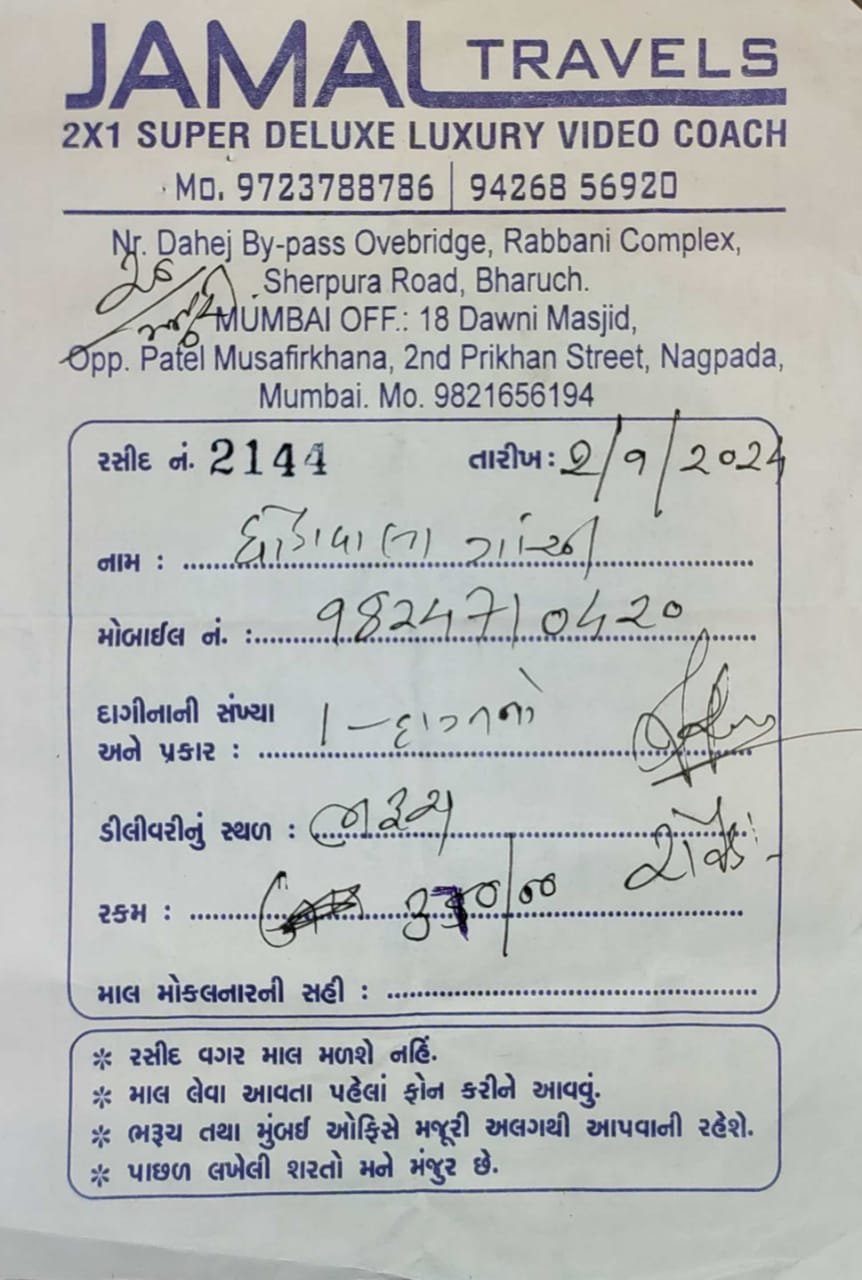 JAMAL TRAVELS
2X1 SUPER DELUXE LUXURY VIDEO COACH
Mo. 9723788786 | 94268 56920
Nr. Dahej By-pass Ovebridge, Rabbani Complex,
Sherpura Road, Bharuch.
MUMBAI OFF.: 18 Dawni Masjid,
Opp. Patel Musafirkhana, 2nd Prikhan Street, Nagpada,
Mumbai. Mo. 9821656194
રસીદ નં. 2144 તારીખ: 2/9/2024
નામ :
મોબાઈલ નં. : 9824710420
દાગીનાની સંખ્યા
અને પ્રકાર : 1 -
ડીલીવરીનું સ્થળ : ભરૂચ
રકમ :
માલ મોકલનારની સહી :
* રસીદ વગર માલ મળશે નહિં.
* માલ લેવા આવતા પહેલાં ફોન કરીને આવવું.
* ભરૂચ તથા મુંબઈ ઓફિસે મજૂરી અલગથી આપવાની રહેશે.
* પાછળ લખેલી શરતો મને મંજુર છે.